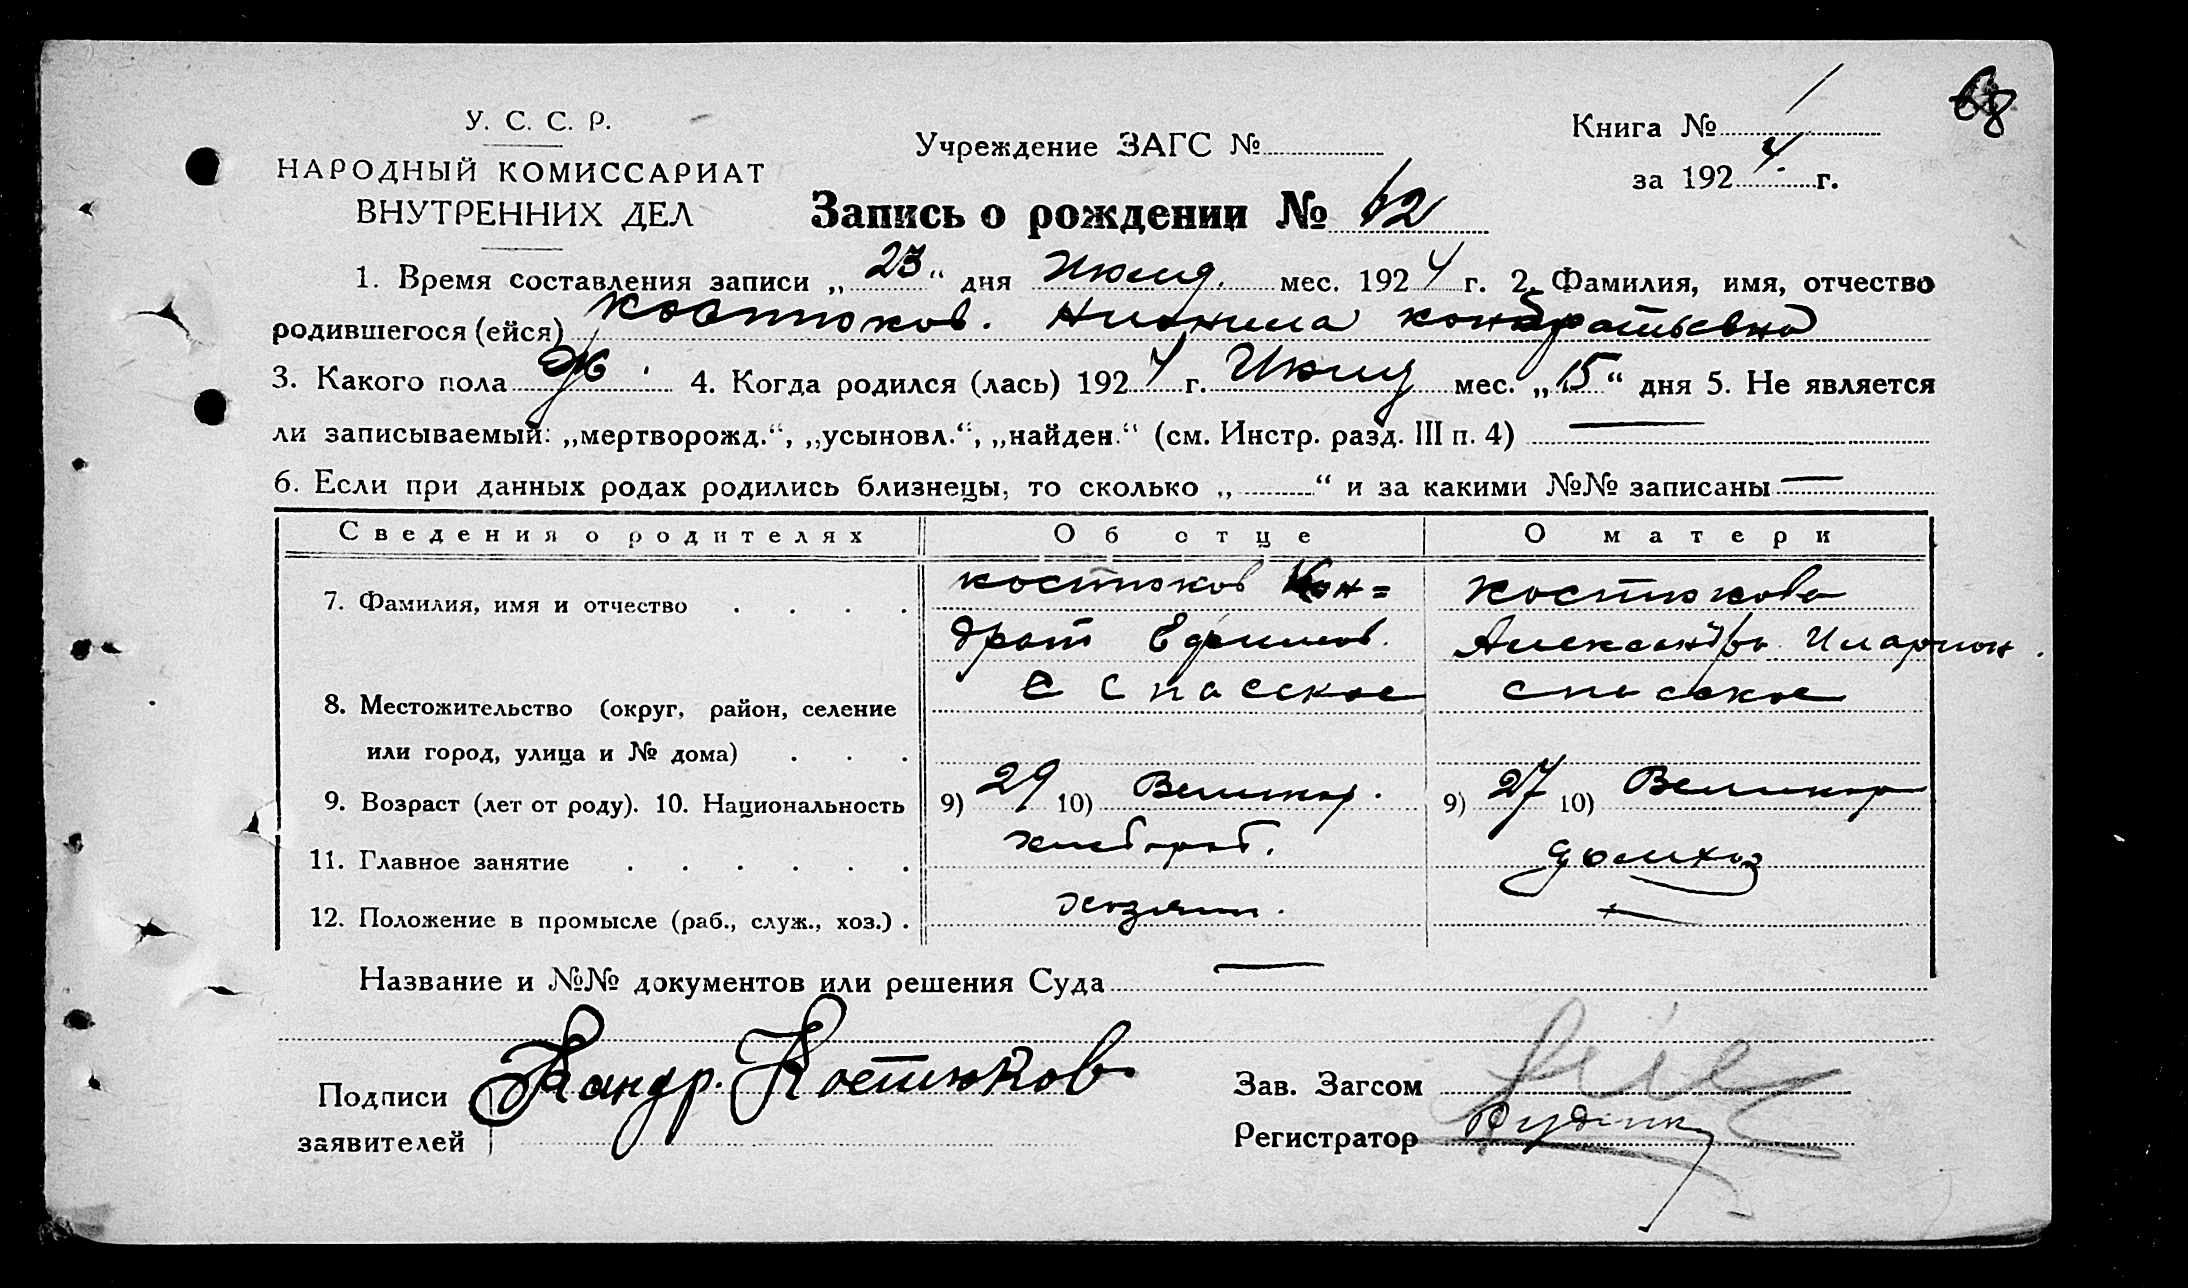 68
У. С. С. Р.
НАРОДНЫЙ КОМИССАРИАТ
ВНУТРЕННИХ ДЕЛ
Учреждение ЗАГС №
Книга № 1
за 1924 г.
Запись о рождении № 62
1. Время составления записи „23“ дня Июля мес. 1924 г. 2. Фамилия, имя, отчество
родившегося (ейся) Костюков. Кондратьевна
3. Какого пола Ж. 4. Когда родился (лась) 1924 г. Июля мес. „15“ дня 5. Не является
ли записываемый: „мертворожд.“, „усыновл.“, „найден.“ (см. Инстр. разд. III п. 4) —
6. Если при данных родах родились близнецы, то сколько „ “ и за какими №№ записаны —
Сведения о родителях Об отце О матери
7. Фамилия, имя и отчество . . . . Костюков Кон= Костюкова
драт Ефимов. Александра Иларион.
8. Местожительство (округ, район, селение с Спасское Спасское
или город, улица и № дома) . . .
9. Возраст (лет от роду). 10. Национальность 9) 29 10) Великор. 9) 27 10) Великор
11. Главное занятие . . . . . . хлебороб. домхоз
12. Положение в промысле (раб., служ., хоз.) . хозяин. —
Название и №№ документов или решения Суда —
Подписи Кандр. Костюков Зав. Загсом
заявителей Регистратор